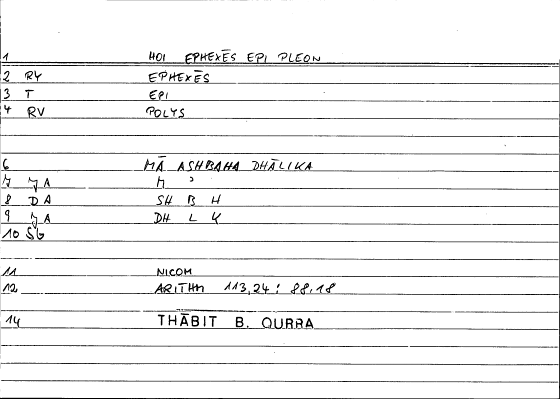 1 HOI EPHEXĒS EPI PLEON
2 RY EPHEXĒS
3 T EPI
4 RV POLYS
6 MĀ ASHBAHA DHĀLIKA
7 JA M ʾ
8 DA SH B H
9 JA DH L K
10 SG
11 NICOM
12 ARITHM 113,24 : 88,18
14 THĀBIT B. QURRA